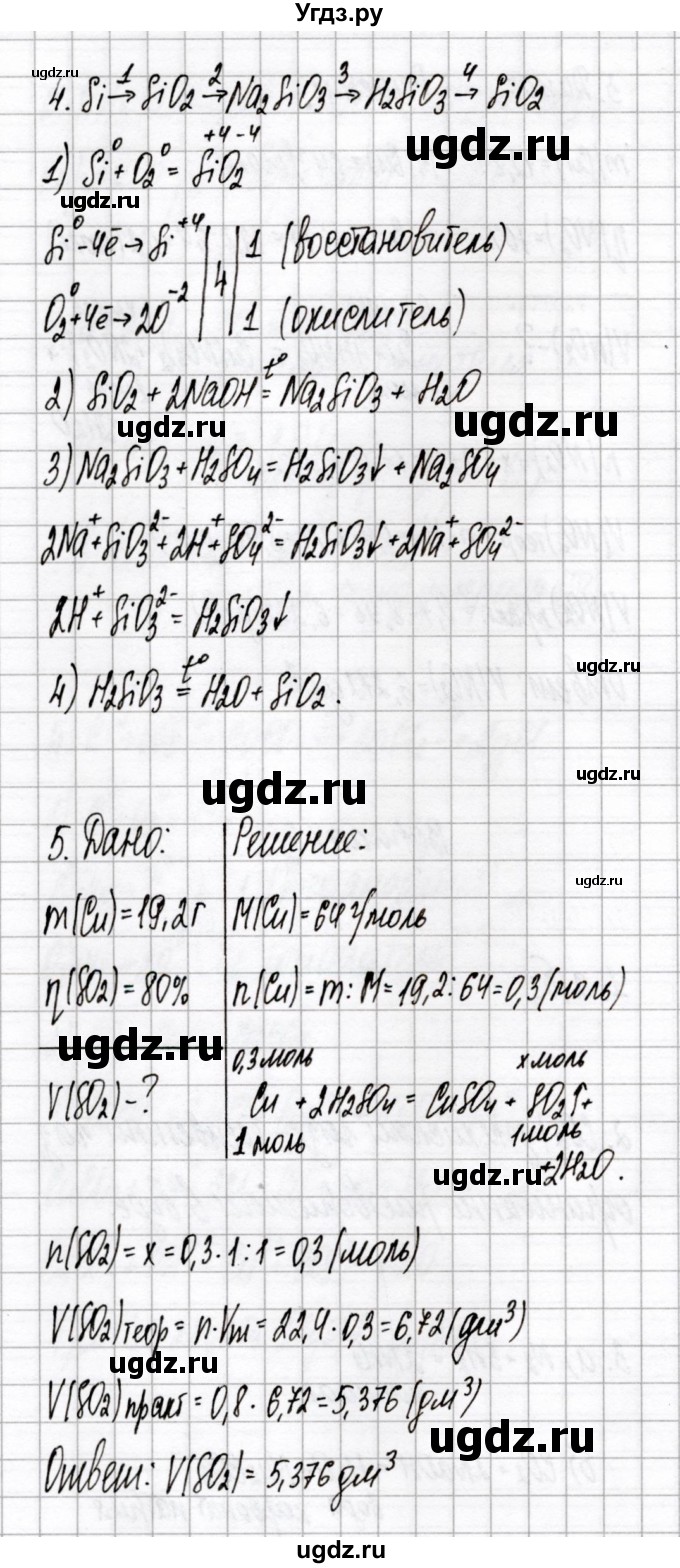 Угдз.ру
ugdz.ru
4. Si →¹ SiO₂ →² Na₂SiO₃ →³ H₂SiO₃ →⁴ SiO₂
ugdz.ru
1) Si⁰ + O₂⁰ = Si⁺⁴O₂⁻⁴
ugdz.ru
Si⁰ - 4ē → Si⁺⁴ | | 1 (восстановитель)
4
O₂⁰ + 4ē → 2O⁻² | | 1 (окислитель)
2) SiO₂ + 2NaOH =t° Na₂SiO₃ + H₂O
ugdz.ru ugdz.ru
3) Na₂SiO₃ + H₂SO₄ = H₂SiO₃↓ + Na₂SO₄
2Na⁺ + SiO₃²⁻ + 2H⁺ + SO₄²⁻ = H₂SiO₃↓ + 2Na⁺ + SO₄²⁻
2H⁺ + SiO₃²⁻ = H₂SiO₃↓
ugdz.ru
4) H₂SiO₃ =t° H₂O + SiO₂.
ugdz.ru
ugdz.ru
5. Дано: Решение:
ugdz.ru
m(Cu) = 19,2г M(Cu) = 64 г/моль
η(SO₂) = 80% n(Cu) = m : M = 19,2 : 64 = 0,3 (моль)
ugdz.ru
0,3 моль x моль
V(SO₂) - ? Cu + 2H₂SO₄ = CuSO₄ + SO₂↑+
1 моль 1 моль
+2H₂O.
ugdz.ru
n(SO₂) = x = 0,3 · 1 : 1 = 0,3 (моль)
V(SO₂)теор = n · Vm = 22,4 · 0,3 = 6,72 (дм³)
ugdz.ru
V(SO₂)практ = 0,8 · 6,72 = 5,376 (дм³)
ugdz.ru
Ответ: V(SO₂) = 5,376 дм³
ugdz.ru